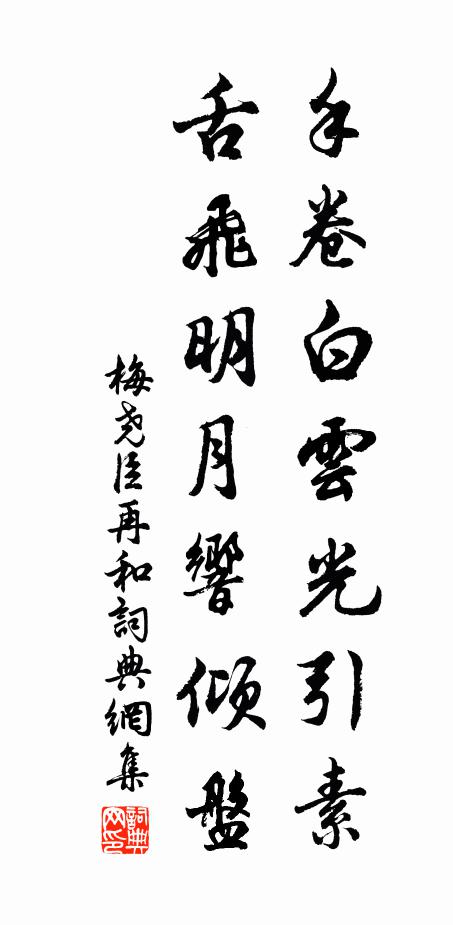 手卷白雲光引素
舌飛明月響傾盤
梅堯臣再和詞典網集
詞典網印